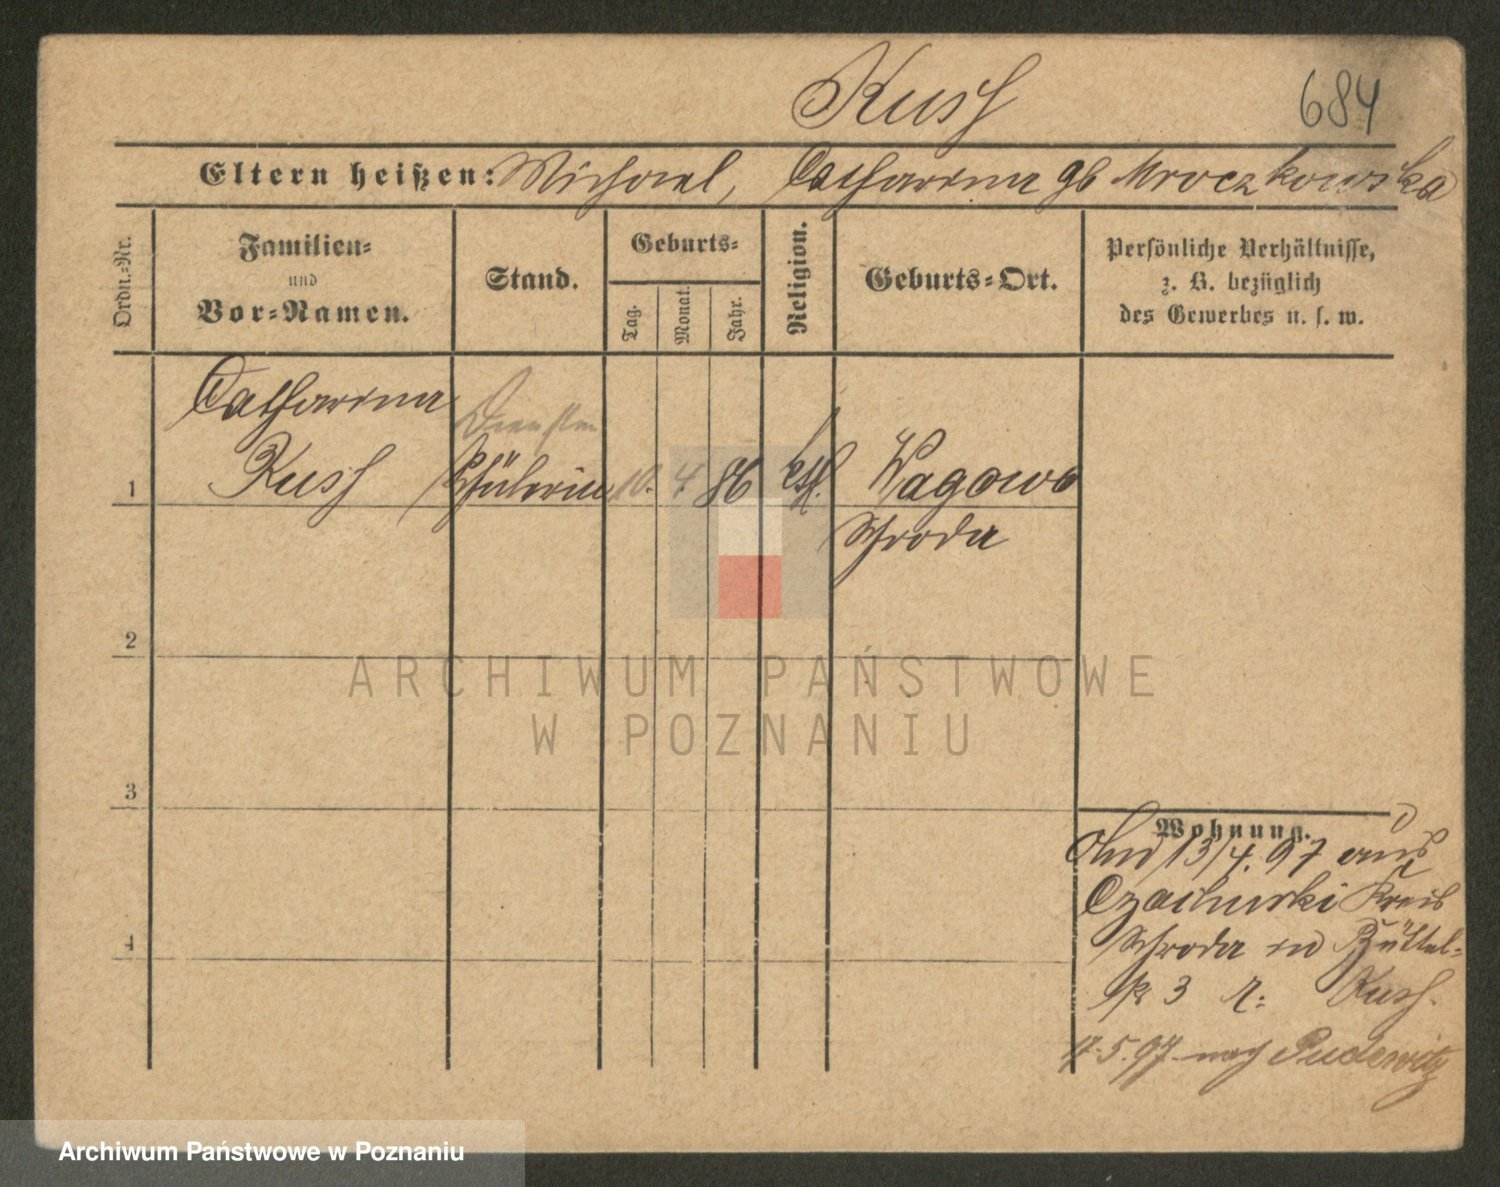 Kusz
684
Eltern heißen: Michael, Catharina gb Mroczkowska
Ordn.=Nr.
Familien=
und
Vor=Namen.
Stand.
Geburts=
Tag.
Monat.
Jahr.
Religion.
Geburts=Ort.
Persönliche Verhältnisse,
z. B. bezüglich
des Gewerbes u. s. w.
Catharina
Kusz
Schülerin
1
10. 4. 86
Wagowo
Schroda
2
3
4
Wohnung.
13/4. 97 aus
Kreis
Schroda in Büttel=
3 Kusz.
5. 97 nach Pudewitz
ARCHIWUM PAŃSTWOWE
W POZNANIU
Archiwum Państwowe w Poznaniu